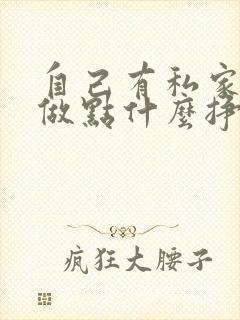 自己有私家
做點什麼掙
疯狂大腰子